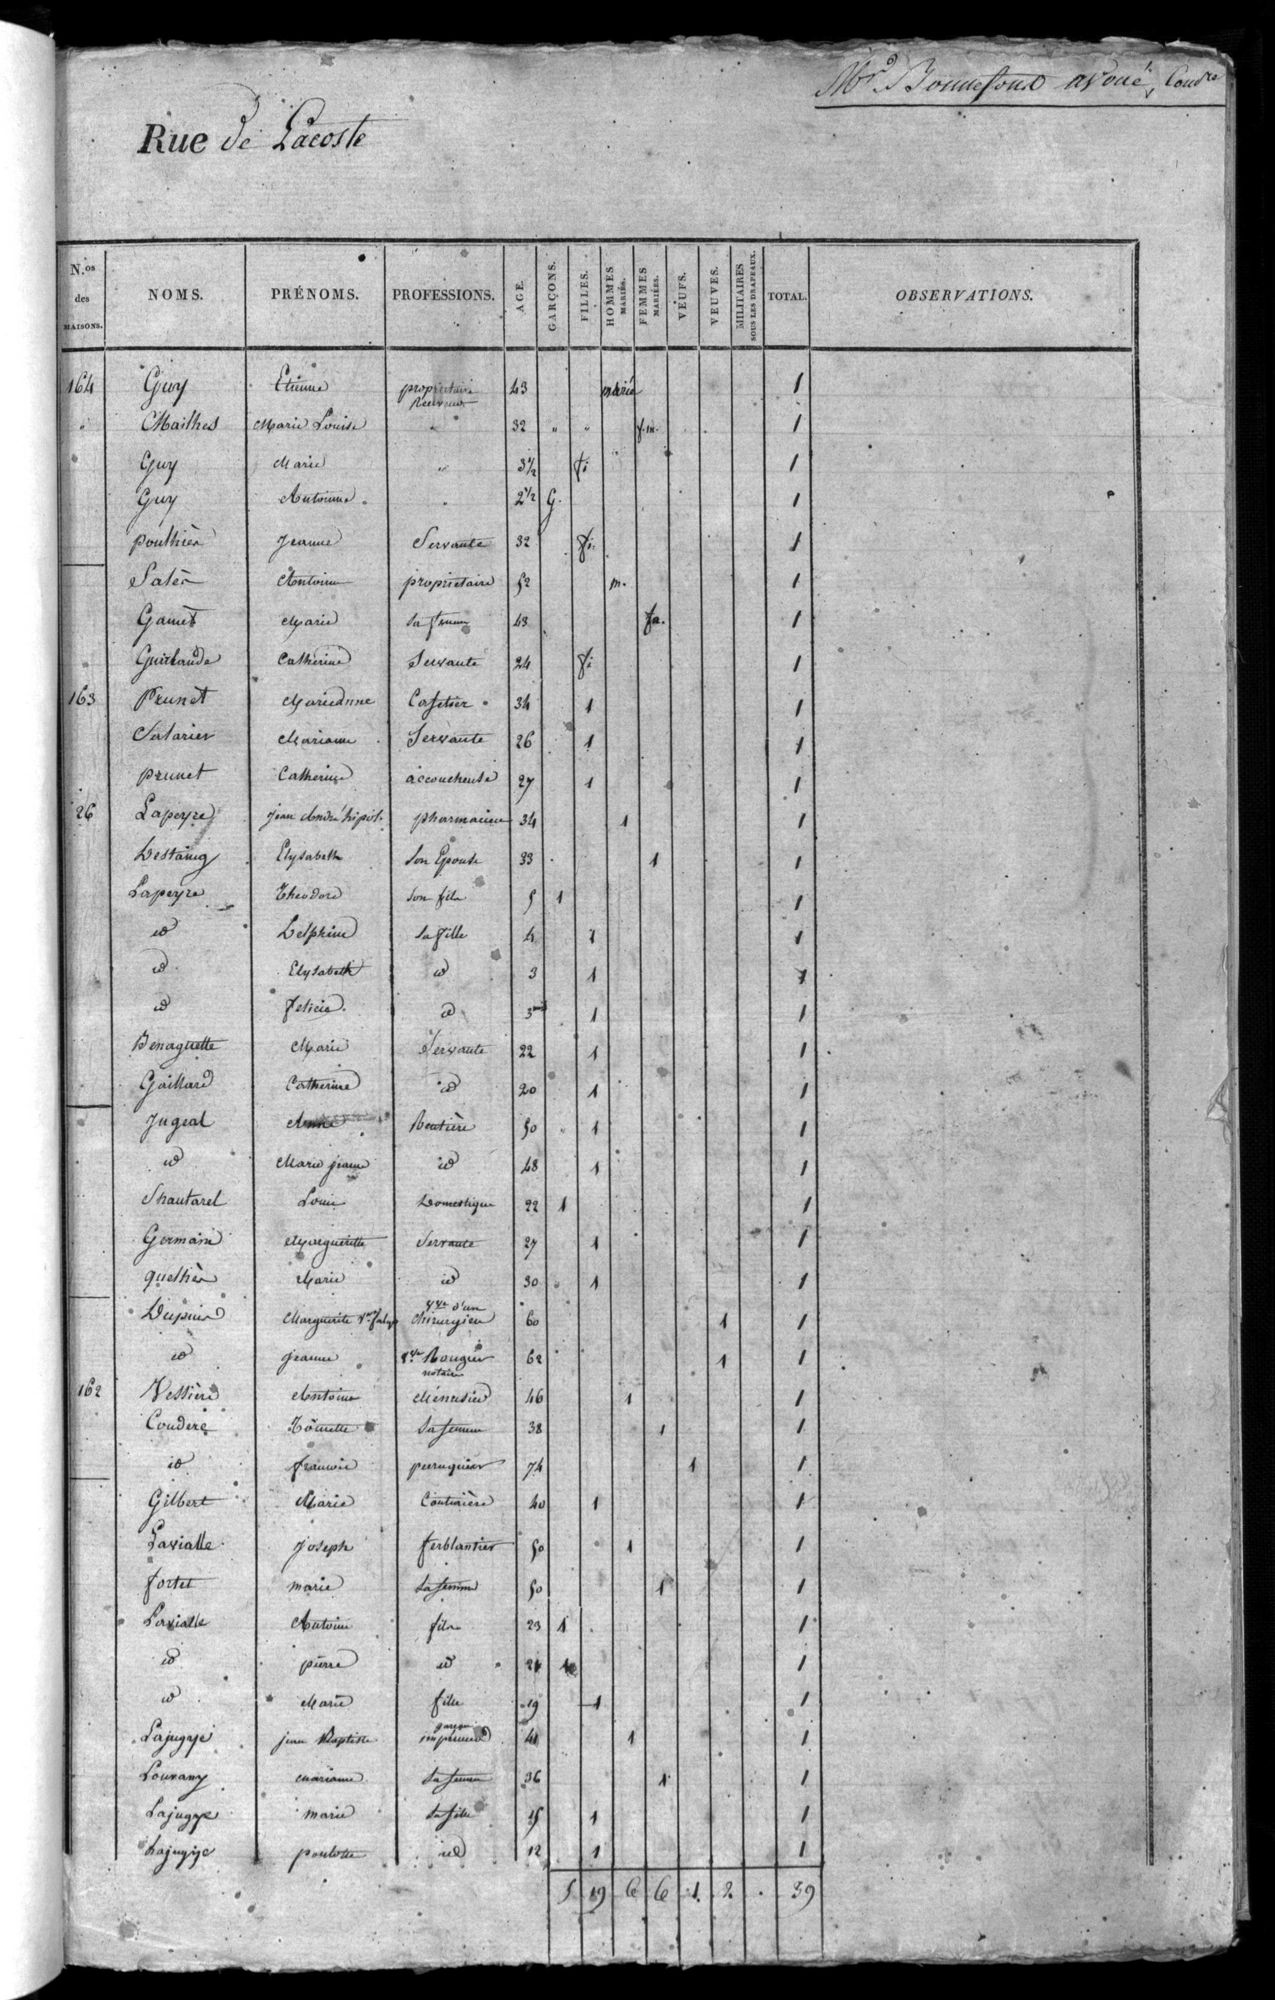 Mr. Bonnefond avoué, Coudre
Rue de Lacoste
N.os des MAISONS. NOMS. PRÉNOMS. PROFESSIONS. AGE. GARÇONS. FILLES. HOMMES MARIÉS. FEMMES MARIÉES. VEUFS. VEUVES. MILITAIRES SOUS LES DRAPEAUX. TOTAL. OBSERVATIONS.
164 Guy Etienne propriétaire 43 marié 1
" Mailhes Marie Louise " 32 " " f.m. 1
Guy Marie " 3 1/2 fi 1
Guy Antoinne " 2 1/2 G. 1
pouthier Jeanne Servante 32 fi. 1
Salès Antoine propriétaire 52 m. 1
Gamet Marie sa femme 43 fa. 1
Guirlande Catherine Servante 24 fi 1
163 Prunet Marie anne Cafetier 34 1 1
Salarier Mariane Servante 26 1 1
prunet Catherine accoucheuse 27 1 1
26 Lapeyre jean André hipol. pharmacien 34 1 1
Destaing Elysabeth Son Epouse 33 1 1
Lapeyre Théodore Son fils 5 1 1
id Delphine Sa fille 4 1 1
id Elysabeth id 3 1 1
id felicie id 3 1 1
Benaguette Marie Servante 22 1 1
Gaillard Catherine id 20 1 1
Jugeal Anne Rentière 50 1 1
id Marie jeanne id 48 1 1
Chautarel Louis Domestique 22 1 1
Germain Marguerite Servante 27 1 1
quettier Marie id 30 1 1
Dupuis Marguerite Vve d'un chirurgien 60 1 1
id Jeanne Vve Rougier notaire 62 1 1
162 Vessière Antoine Menusier 46 1 1
Couderc Toinette Sa femme 38 1 1
id francois perruquier 74 1 1
Gilbert Marie Couturière 40 1 1
Lavialle Joseph ferblantier 50 1 1
fortet marie Sa femme 50 1 1
Lavialle Antoine fils 23 1 1
id pierre id 21 1 1
id Marie fille 19 1 1
Lajugye jean Baptiste 41 1 1
Louvany mariane Sa femme 36 1 1
Lajugye marie Sa fille 15 1 1
Lajugye poulotte id 12 1 1
5 19 6 6 1 2 . 39